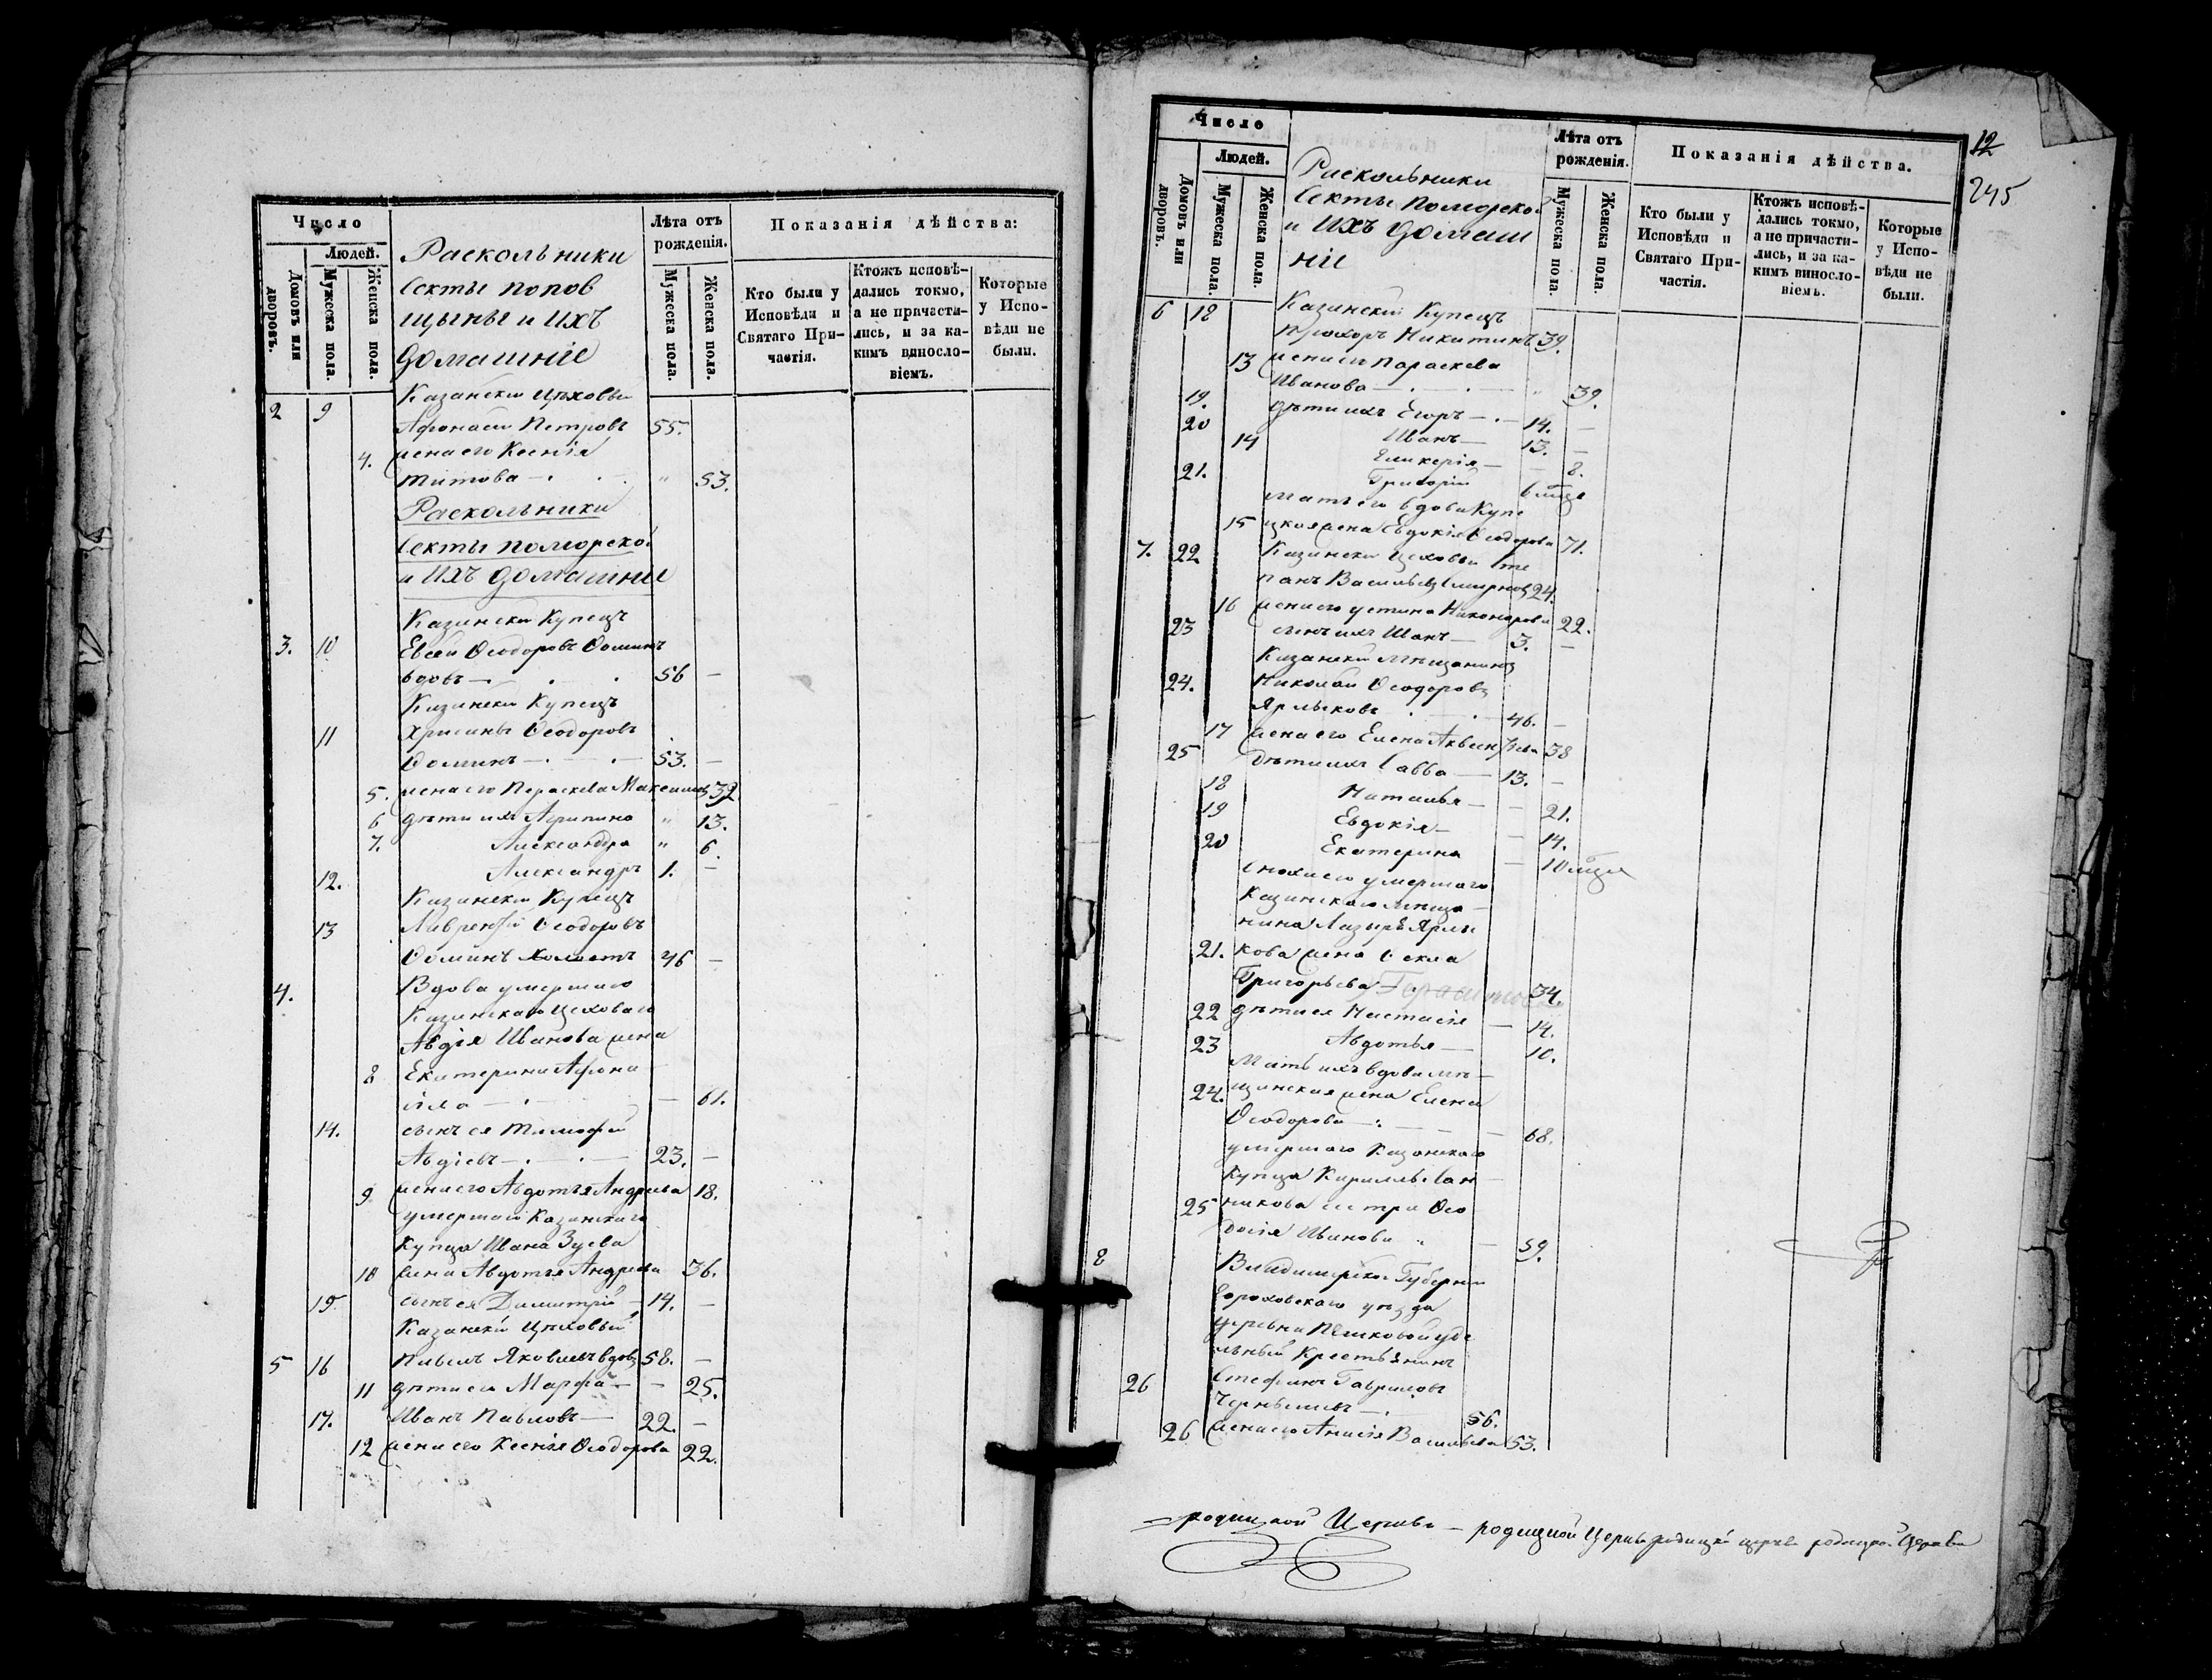 Число
Людей.
Домовъ или дворовъ.
Мужеска пола.
Женска пола.
Раскольники
секты попов
щыны и ихъ
домашніе
Лѣта отъ рожденія.
Мужеска пола.
Женска пола.
Показанія дѣйства:
Кто были у Исповѣди и Святаго Причастія.
Ктожъ исповѣдались токмо, а не причастились, и за какимъ винословіемъ.
Которые у Исповѣди не были.
Казанскій цѣховый
2 9 Афонасій Петровъ 55.
4. жена его Ксенія
Титова — " 53.
Раскольники
секты поморской
и ихъ домашніе
Казанскій Купецъ
3. 10 Евсей Ѳеодоровъ Ѳоминъ
вдовъ — 56 —
Казанскій Купецъ
11 Ѳеодоровъ
Ѳоминъ — 53. —
5. жена его Параскева Максимова 39
6 дѣти ихъ Агрипина " 13.
7. Александра " 6.
12. Александръ 1. —
Казанскій Купецъ
13 Лаврентій Ѳеодоровъ
Ѳоминъ холостъ 46 —
4. Вдова умершаго
Казанскаго цеховаго
Авдія Иванова жена
8 Екатерина Афона
сіева — — 61.
14. сынъ ея Тимофей
Авдіевъ — 23. —
9 жена его Авдотья Андреева 18.
умершаго Казанскаго
купца Ивана Зуева
10 жена Авдотья Андреева 36.
15 сынъ ея Димитрій — 14. —
Казанскій цѣховый
5 16 Павелъ Яковлевъ вдовъ 58. —
11 дѣти его Марфа — — 25.
17. Иванъ Павловъ — 22. —
12 жена его Ксенія Ѳеодорова 22.
12
245
Число
Людей.
Домовъ или дворовъ.
Мужеска пола.
Женска пола.
Раскольники
секты поморской
и ихъ домаш
ніе
Лѣта отъ рожденія.
Мужеска пола.
Женска пола.
Показанія дѣйства.
Кто были у Исповѣди и Святаго Причастія.
Ктожъ исповѣдались токмо, а не причастились, и за какимъ винословіемъ.
Которые у Исповѣди не были.
6 18 Казанскій Купецъ
Прохоръ Никитинъ 39.
13 жена его Параскева
Иванова — " 39.
19. дѣти ихъ Егоръ — 14. —
20 Иванъ — 13. —
14 Гликерія — — 8.
21. Григорій 6 мѣсяц
мать его вдова Купе
15 цкая жена Евдокія Ѳеодорова 71.
7. 22 Казанскій цеховый Сте
панъ Васильевъ Смирновъ 24.
16 жена его Устина Никонорова 22.
23 сынъ ихъ Иванъ — 3. —
Казанскій мѣщанинъ
24. Николай Ѳеодоровъ
Ярлыковъ — 46. —
17 жена его Елена 38
25 Дѣти ихъ Савва — 13. —
18 Наталья — — 21.
19 Евдокія — — 14.
20 Екатерина — 10 мѣсяц
сноха его умершаго
Казанскаго мѣща
нина Лазаря Ярлы
21. кова жена Ѳекла
Григорьева 34.
22 дѣти ея Настасія — 14.
23 Авдотья — 10.
Мать ихъ вдова мѣ
24. щанская жена Елена
Ѳеодорова — 68.
умершаго Казанскаго
купца Кирилы Сан
25 никова сестра Ѳео
досія Иванова " — 59.
8 Владимірской Губерніи
Гороховскаго уѣзда
деревни Пешковой уде
льный Крестьянинъ
26 Стефанъ Гавриловъ
Чернышевъ — 56.
26 жена его Анисія Васильева 53.
родицкой Церкви — родицкой Церкви родицкой церкви родицкой Церкви